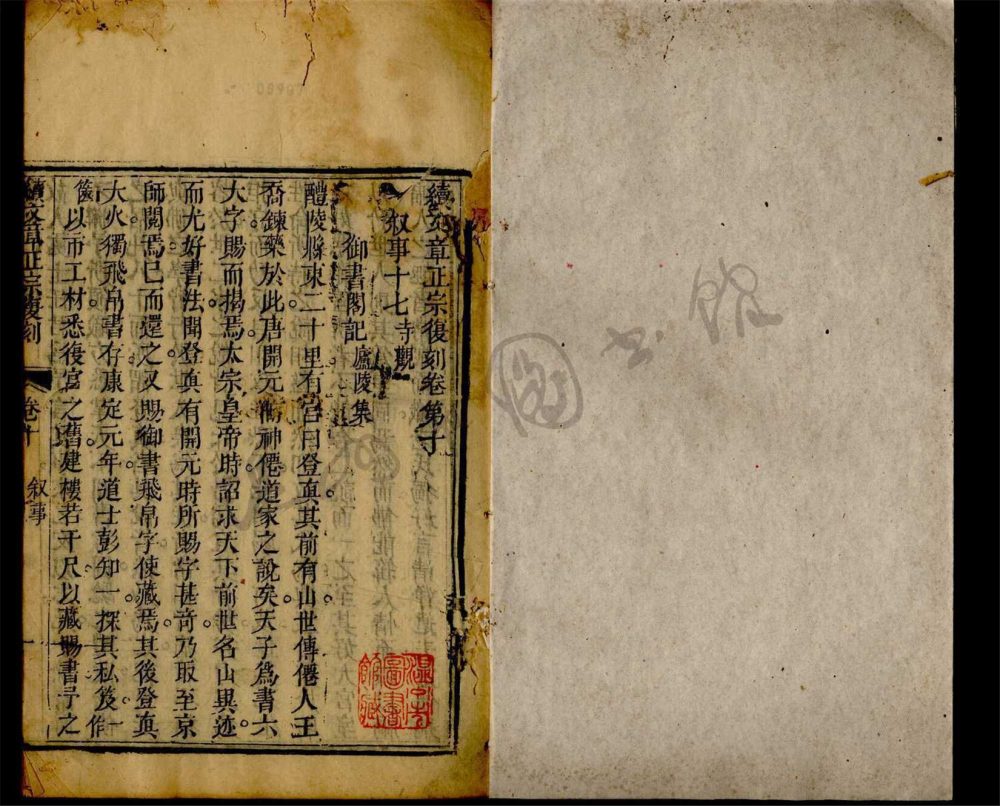 續文章正宗復刻卷第十
叙事十七 寺觀
御書閣記 廬陵集
醴陵縣東二十里有宫曰登眞其前有山世傳僊人王
喬鍊藥於此唐開元間神僊道家之說天子爲書六
大字賜而揭焉太宗皇帝時詔求天下前世名山異迹
而尤好書法聞登眞有開元時所賜字甚竒乃取至京
師閱焉已而還之又賜御書飛帛字使藏焉其後登眞
大火獨飛帛書存康定元年道士彭知一探其私笈一作
篋以市工材悉復宫之舊建樓若干尺以藏賜書予之
續文章正宗復刻
卷十
叙事
一
温州圖書館藏